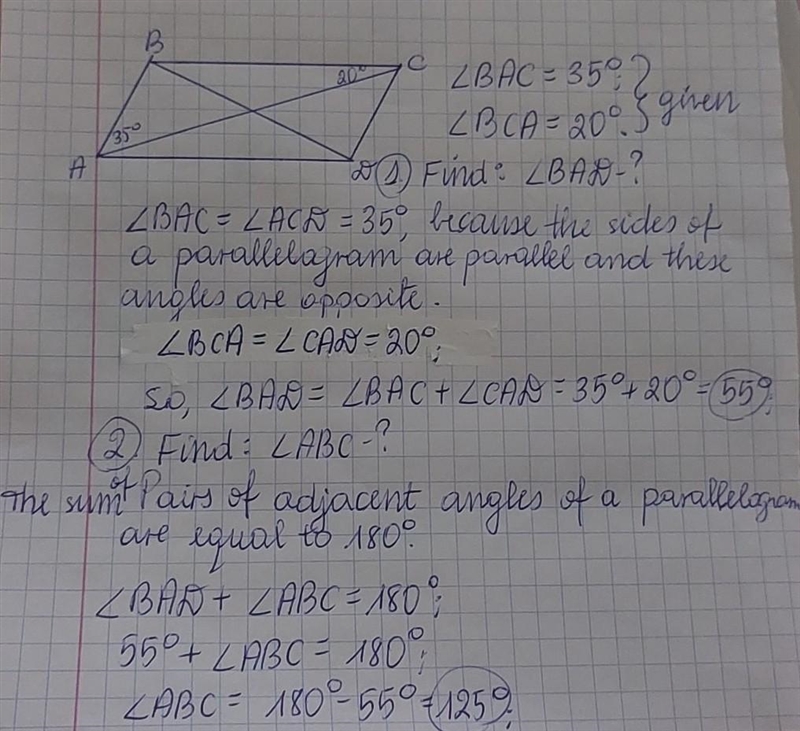 B
20°
C
∠BAC = 35°;
∠BCA = 20°.
} given
35°
A
D
1. Find: ∠BAD-?
∠BAC = ∠ACD = 35°, because the sides of
a parallelagram are parallel and these
angles are opposite.
∠BCA = ∠CAD = 20°;
So, ∠BAD = ∠BAC + ∠CAD = 35° + 20° = 55°;
2 Find: ∠ABC-?
The sum of Pairs of adjacent angles of a parallelogram
are equal to 180°.
∠BAD + ∠ABC = 180°;
55° + ∠ABC = 180°;
∠ABC = 180° - 55° = 125°;